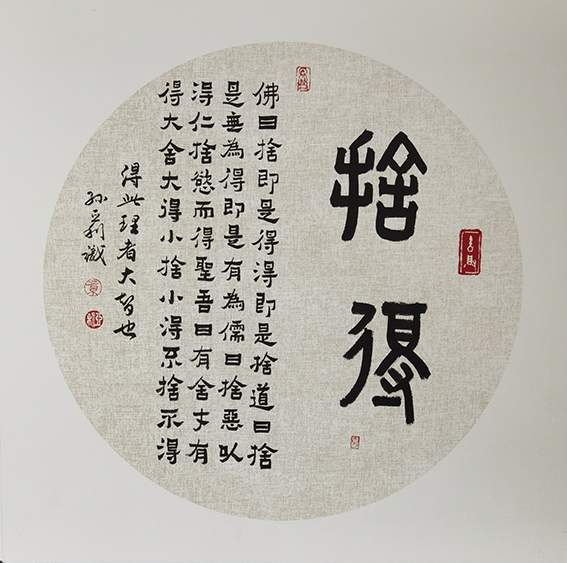 捨得
佛曰捨即是得得即是捨道曰捨
是無為得即是有為儒曰捨惡以
得仁捨慾而得聖吾曰有舍才有
得大舍大得小捨小得不捨不得
得此理者大智也
孙莉識